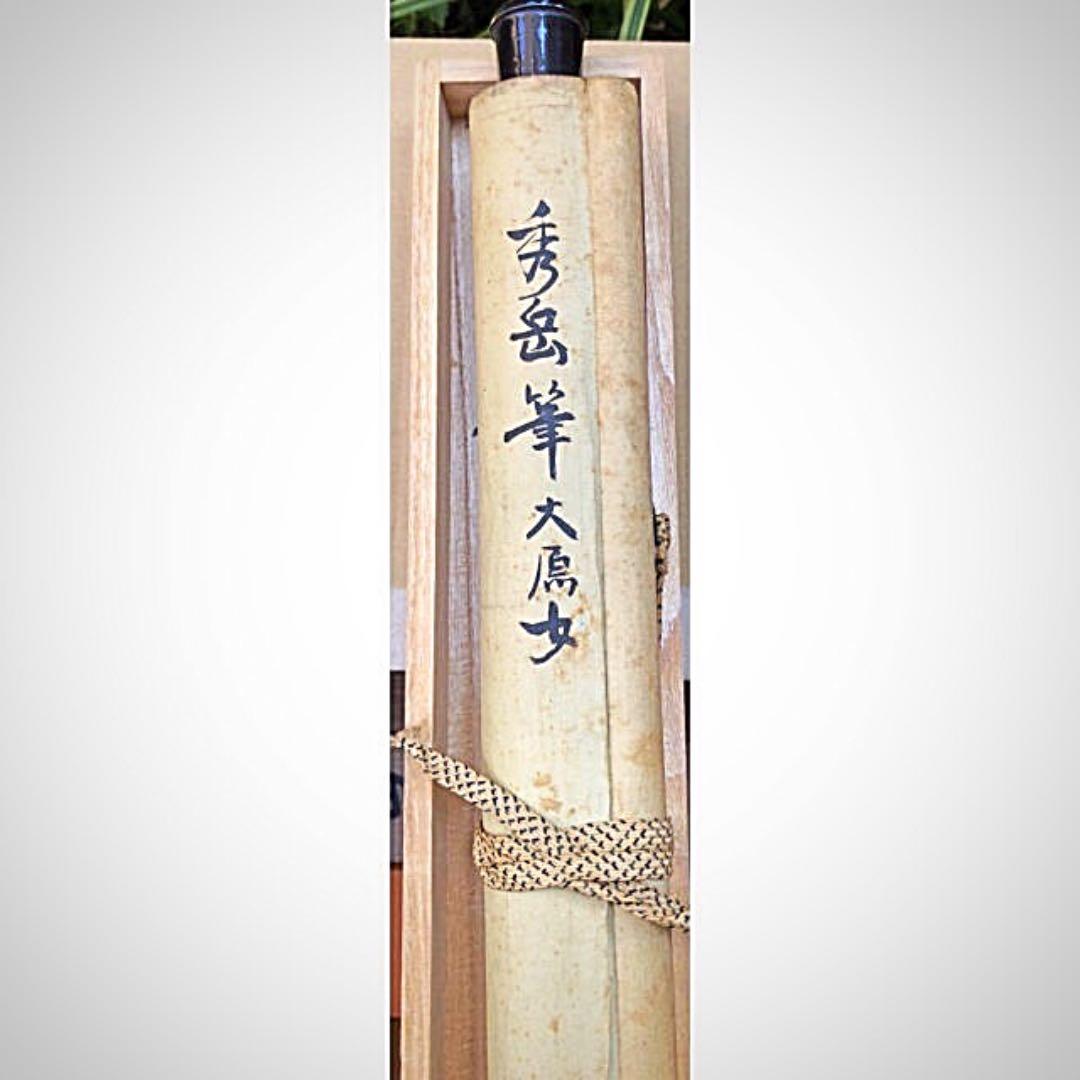 秀岳筆大原女